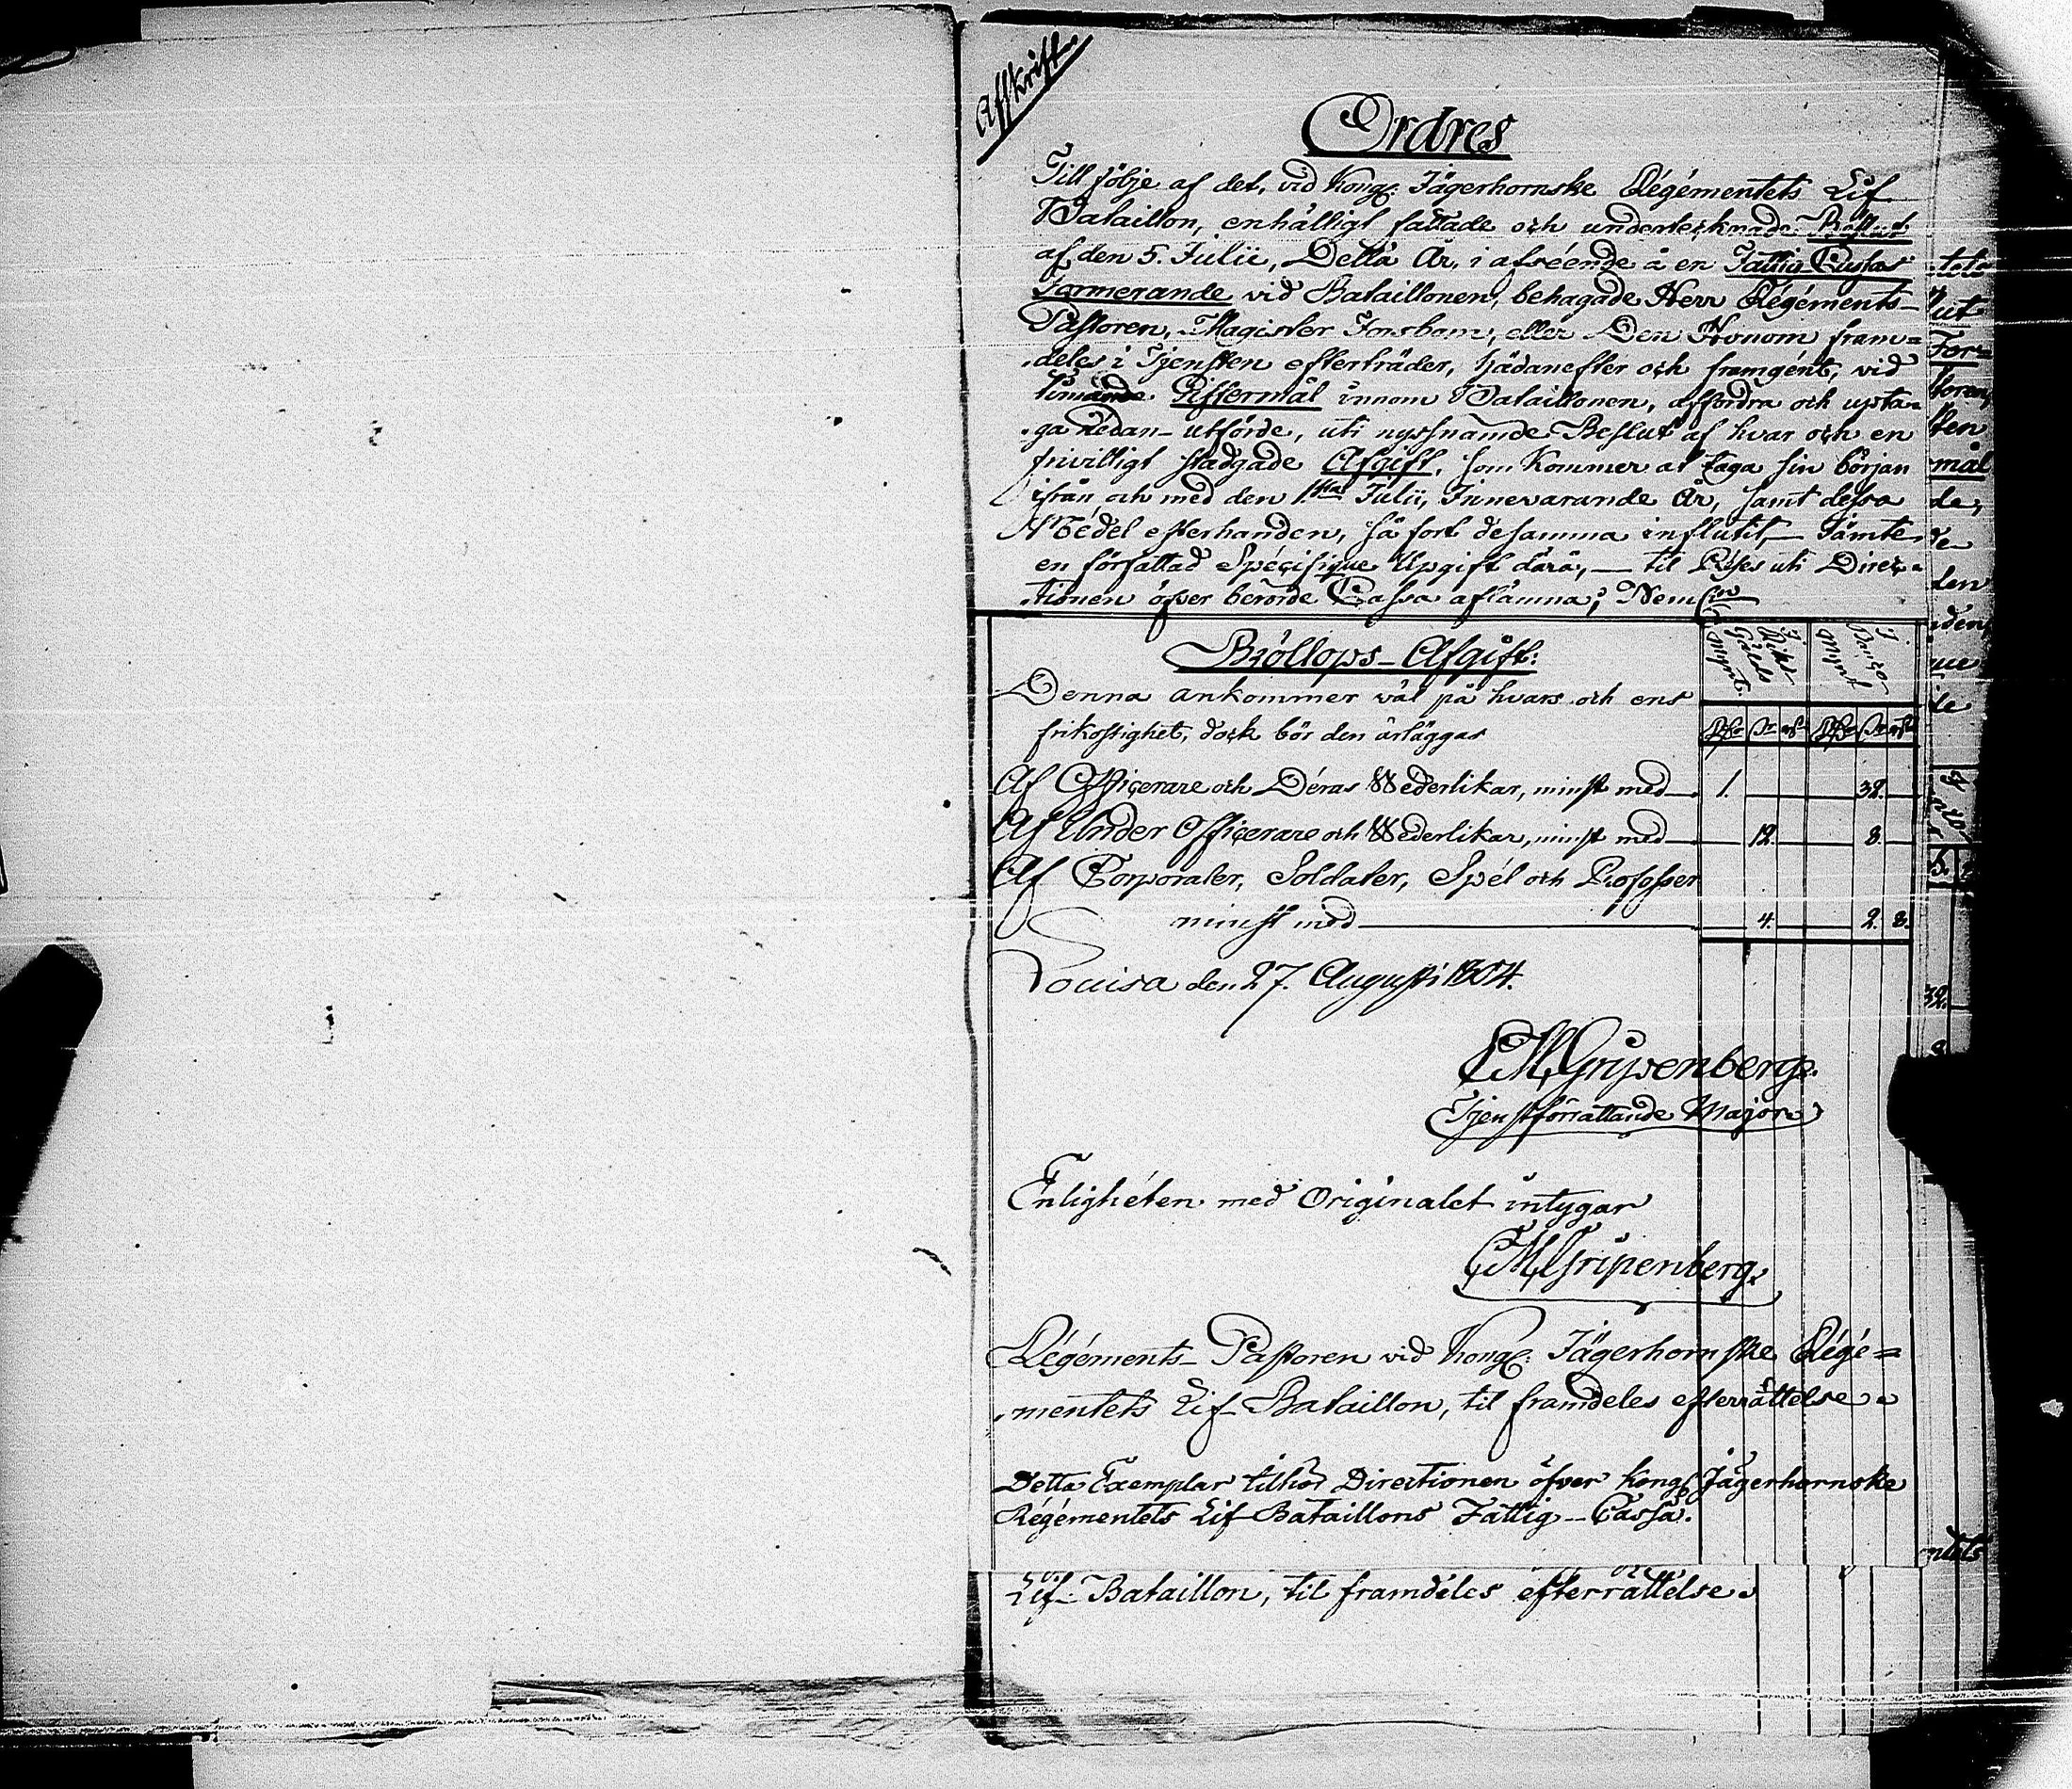 Afskrift.
Ordres
Till följe af det, vid Kongl: Jägerhornske Régémentets Lif
Bataillon, enhälligt fattade och undertecknade Beslut
af den 5. Julii, Detta År, i afséende å en Fattig Cassas
Formerande vid Bataillonen, behagade Herr Régéments-
Pastoren, Magister Forsbom, eller Den Honom fram-
deles i Tjensten efterträder, hädanefter och framgént, vid
timande Giftermål innom Bataillonen, affordra och upta-
ga nedan-utförde, uti nyssnämde Beslut af hvar och en
frivilligt stadgade Afgift, som Kommer at taga sin början
ifrån och med den 1sta Julii, Innevarande År, samt dessa
Médel efterhanden, så fort desamma influtit, — Jämte
en författad Spécifique Upgift därå, — til Pises uti Direc-
tionen öfver berörde Cassa aflämna; Neml:
Bröllops-Afgift:
I Riks Gälds Mynt.
I Banco Mynt
Denna ankommer väl på hvars och ens
frikostighet, dock bör den ärläggas
Rdr sk rst Rdr sk rst
Af Officerare och Déras Wederlikar, minst med — 1. — 32. —
Af Under Officerare och Wederlikar, minst med — 12. — 8. —
Af Corporaler, Soldater, Spél och Profosser
minst med — 4. — 2. 8.
Lovisa den 27. Augusti 1804.
CM Gripenberg.
Tjenstförrättande Major
Enlighéten med Originalet intygar
CM Gripenberg.
Régéments-Pastoren vid Kongl: Jägerhornske Régé-
mentets Lif-Bataillon, til framdeles efterrättelse
Detta Exemplar tilhör Directionen öfver Kongl Jägerhornske
Régémentets Lif Bataillons Fattig-Cassa.
Lif-Bataillon, til framdéles efterrättelse